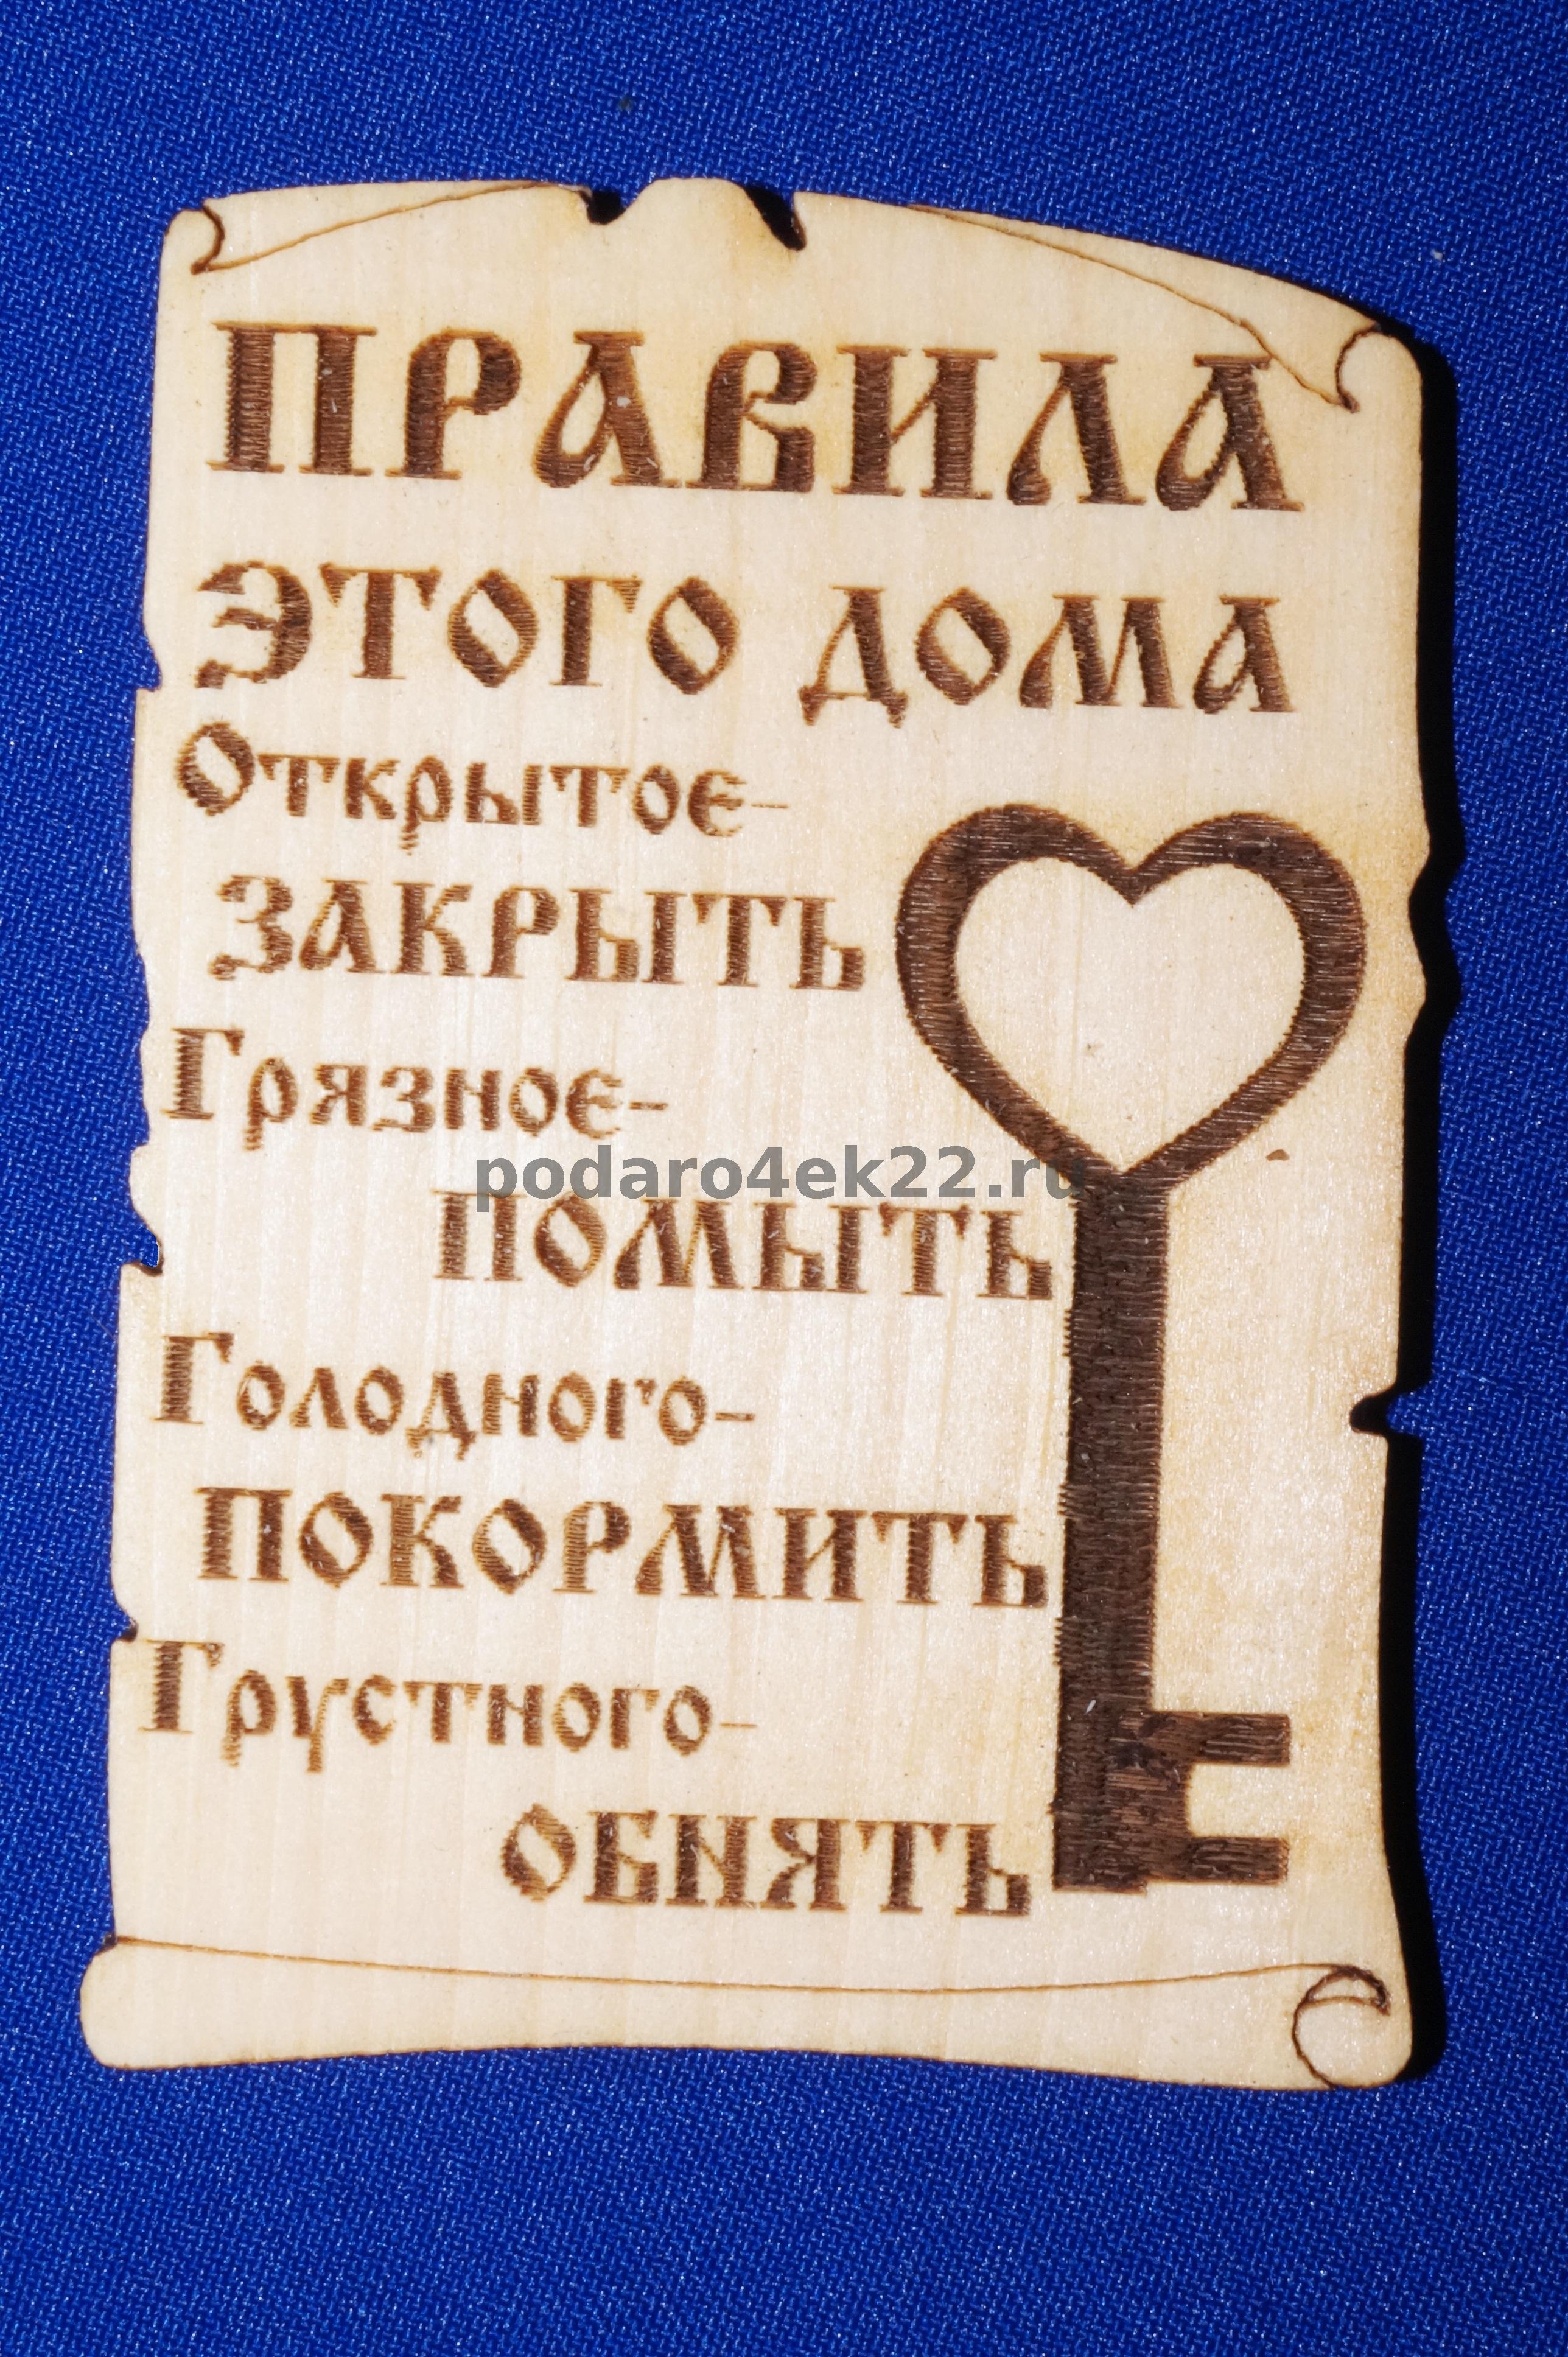 ПРАВИЛА
ЭТОГО ДОМА
Открытое-
ЗАКРЫТЬ
Грязное-
podaro4ek22.ru
ПОМЫТЬ
Голодного-
ПОКОРМИТЬ
Грустного-
ОБНЯТЬ